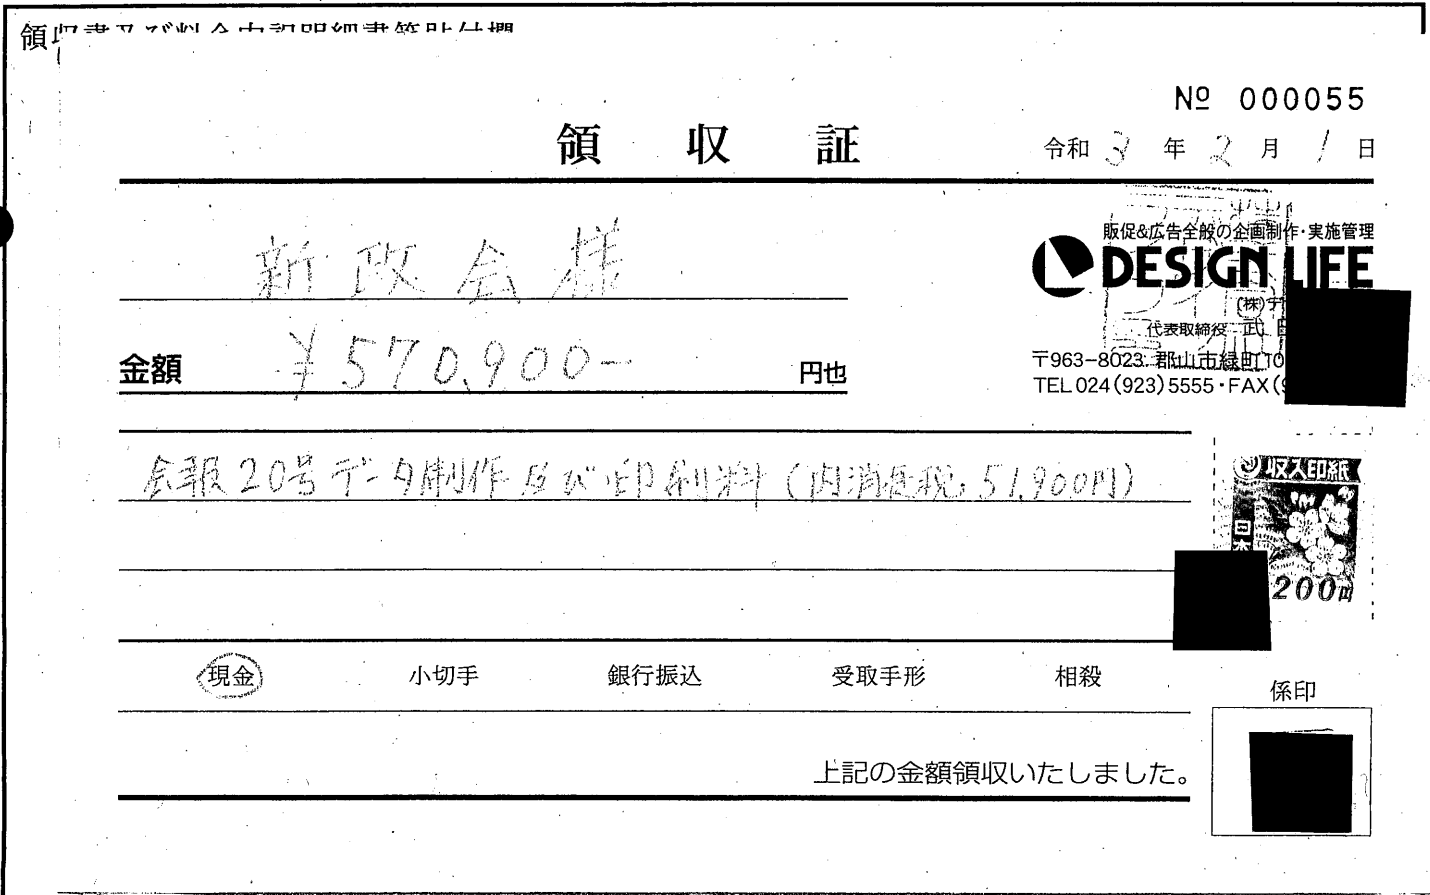 領収書及び料金内訳明細書等貼付欄
№ 000055
領収証
令和 3 年 2 月 1 日
新政会様
金額 ¥570,900- 円也
販促&広告全般の企画制作・実施管理
DESIGN LIFE
(株)デ
代表取締役 武
〒963-8023 郡山市緑町10
TEL 024(923)5555・FAX(
会報20号データ制作及び印刷料(内消費税51,900円)
収入印紙
日本
200円
現金 小切手 銀行振込 受取手形 相殺
係印
上記の金額領収いたしました。